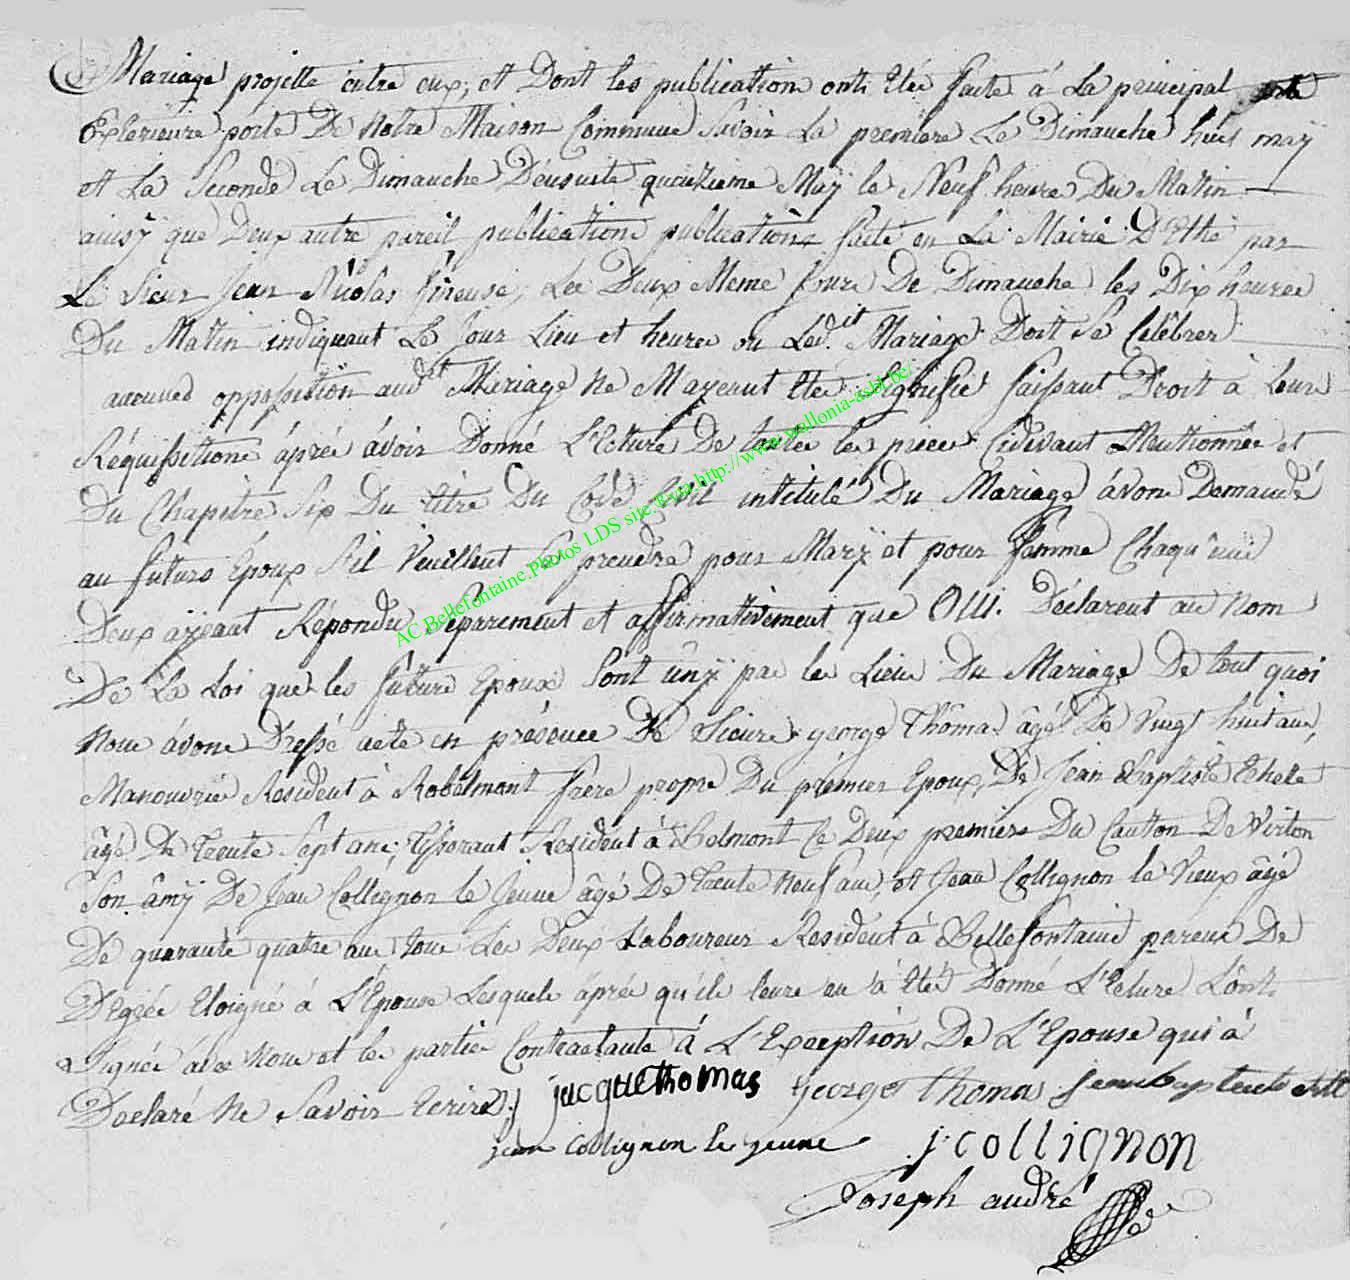 Mariage projetté entre eux, et Dont les publication onti Eté faite á La principal
Exterieure porte De Notre Maison Commune Savoir La premiere Le Dimanche huit may
et La Seconde Le Dimanche Densuite quinzieme May le Neuf heure Du Matin
ainsy que Deux autre pareil publication publication faite en La Mairie D'Ethe par
Le Sieur Jean Nicolas Les Deux Meme Jour De Dimanche les Dix heures
Du Matin indiquant Le Jour Lieu et heure ou Led.it Mariage Doit Se Celêbrer
aucunes oppossition audt Mariage Ne Mayeant Eté Signifié faissant Droit à Leur
Réquissitions áprés ávoir Donné L'Ecture De toutes les piece Cidevant Mentionnée et
Du Chapitre Six Du titre Du Code Civil intitulé Du Mariage ávons Demandé
au futurs Epoux S'il Veuillent Se prendre pour Mary et pour femme Chaqu'une
Deux ayeant Répondu Séparement et affirmativement que OUI. Déclarent au Nom
De La Loi que les future Epoux Sont ûny par les Lien Du Mariage De tout quoi
Nous ávons Dressé acte en présence De Sieurs george Thômas âgé De Vingt huit ans,
Manouvrié Résident à Robelmont frère propre Du prémier Epoux, De Jean Baptiste Ethete
âgé De trente Sept ans, tisserant Résident à Belmont Ce Deux premiers Du Canton De Virton
Son âmy De Jean Collignon le Jeune âgé De trente Neuf ans, et Jean Collignon le Vieux âgé
De quarante quatre ans tous Les Deux Laboureur Résident à Bellefontaine parens De
Dégrée Eloigné á L'Epouse Lesquels áprés qu'ils leurs en á Eté Donné L'Ecture L'onts
Signée ávec Nous et les partie Contractante á L'Exception De L'Epouse qui á
Declaré Ne Savoir Ecrire.
jacque thomas George thomas
jean Collignon le jeune j collignon
Joseph andré
AC.Bellefontaine.Photos LDS site http://www.wallonia-asbl.be/